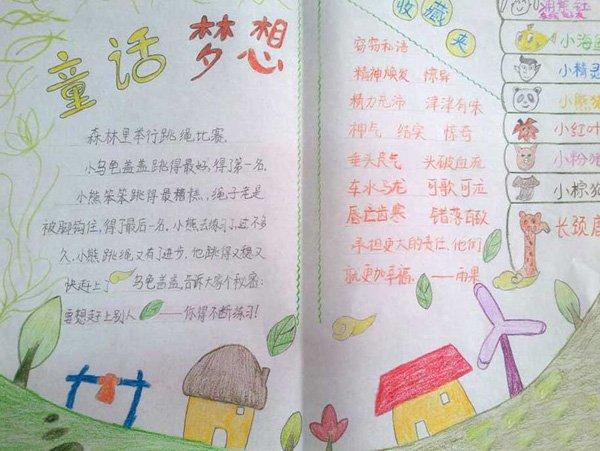 童话梦想
森林里举行跳绳比赛.
小乌龟盖盖跳得最好,得了第一名.
小熊笨笨跳得最糟糕,绳子老是
被脚钩住,得了最后一名.小熊去练习了,过不多
久,小熊跳绳又有了进步.他跳得又稳又
快赶上了 乌龟盖盖告诉大家个秘密:
要想赶上别人——你得不断练习!
收藏夹
窃窃私语
精神焕发 惊异
精力充沛 津津有味
神气 结实 惊奇
垂头丧气 头破血流
车水马龙 可歌可泣
唇亡齿寒 错落有致
承担更大的责任,他们
就更加幸福.——雨果
小海
小精灵
小熊猫
小红叶
小粉猪
小棕狗
长颈鹿